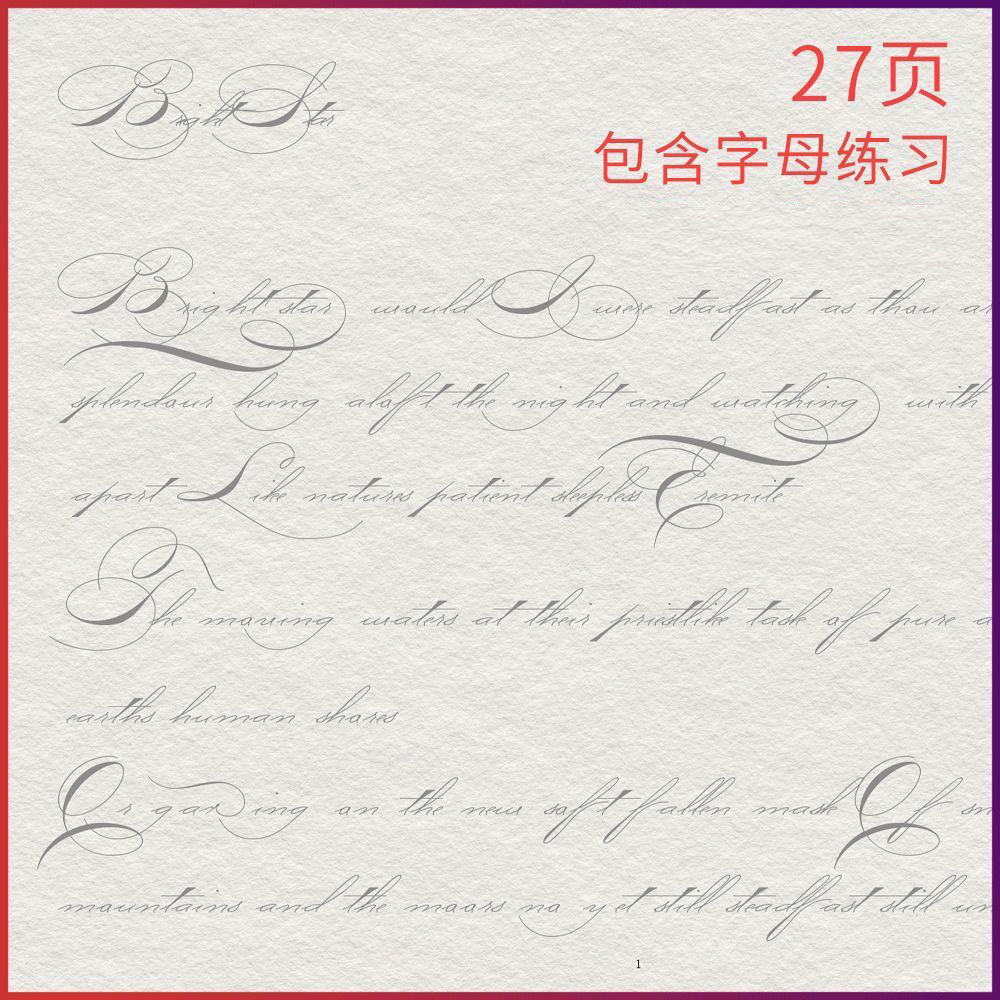 27页
包含字母练习
Bright Star
Bright star would I were steadfast as thou ar
splendour hung aloft the night and watching with
apart Like natures patient sleepless Eremite
The moving waters at their priestlike task of pure a
earths human shores
Or gazing on the new soft fallen mask Of sn
mountains and the moors no yet still steadfast still un
1